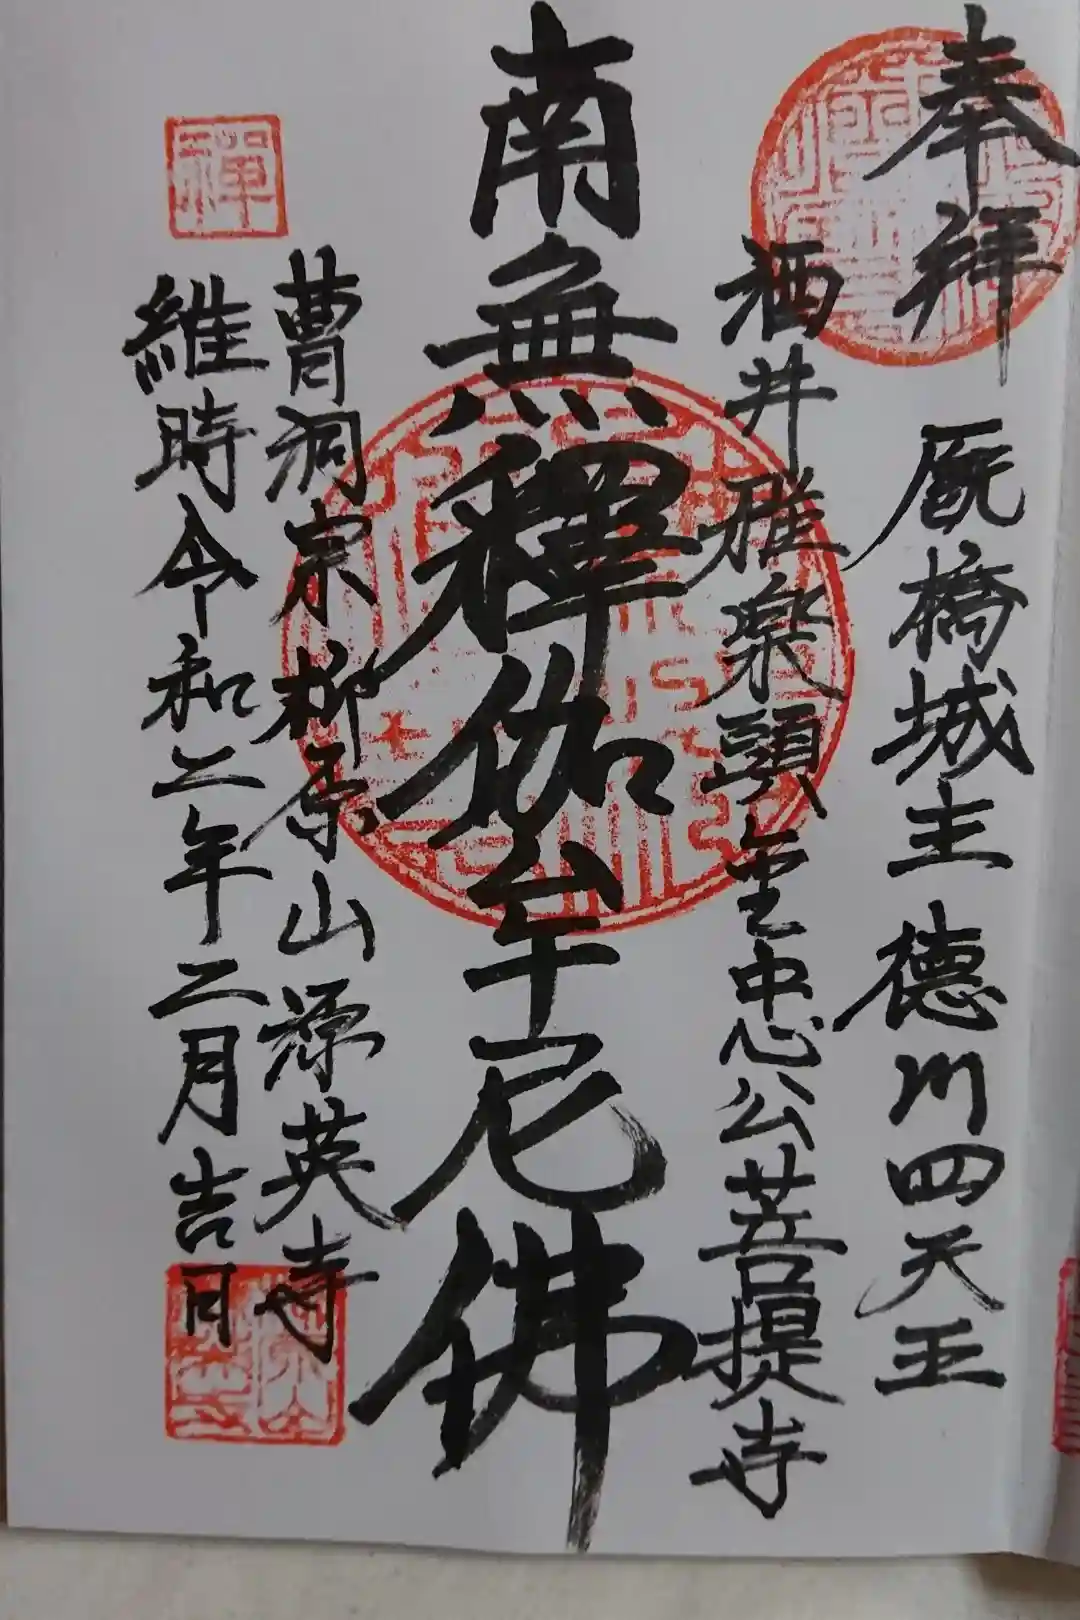 奉拜 厩橋城主 德川四天王
酒井雅楽頭重忠公菩提寺
南無釋伽牟尼佛
曹洞宗 柳原山 源英寺
維時令和二年二月吉日
禪